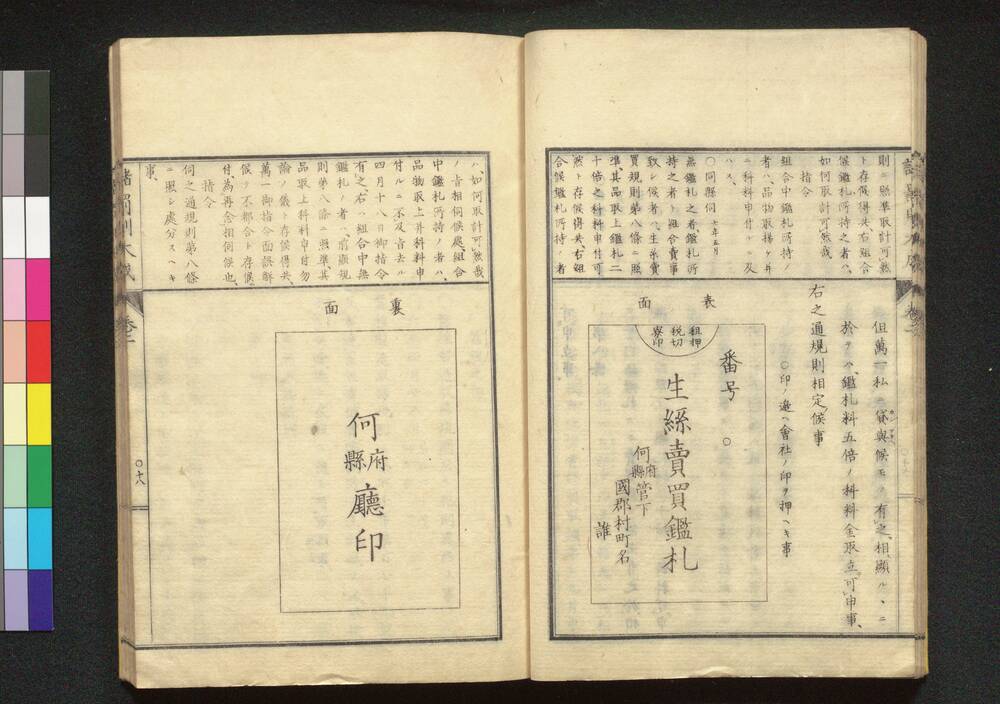 則ニ照準取計可然
ト存候得共、右組合
候鑑札所持之者ハ、
如何取計可然哉
指令
組合中鑑札所持ノ
者ハ品物取揚ケ并
ニ科料申付ルニ及
ハス、
〇同縣伺 七年五月
無鑑札之者鑑札所
持之者ト組合賣事
致シ候者ハ、生糸賣
買規則第八條ニ照
準、其品取上鑑札二
十倍之科料申付可
然ト存候得共、右組
合候鑑札所持ノ者
但萬一私ニ貸與候モノ有之、相顯ルヽニ
於テハ、鑑札料五倍ノ科料金取立可申事、
右之通規則相定候事
〇印ノ邊ヘ會社ノ印ヲ押ヘキ事
表面
租税寮
押切印
番号
〇
生絲賣買鑑札
何府縣管下
國郡村町名
誰
ハ如何取計可然哉
ノ旨相伺候處、組合
中鑑札所持ノ者ハ、
品物取上并科料申
付ルニ不及旨去ル
四月十八日御指令
有之、右ハ組合中無
鑑札ノ者ハ、前顯規
則第八條ニ照準其
品取上科料申付勿
論ノ儀ト存候得共、
萬一御指令面誤解
候テハ不都合ト存候
付、為再念相伺候也、
指令
伺之通規則第八條
ニ照シ處分スヘキ
事、
裏面
何府縣廳印
卷二
〇十八